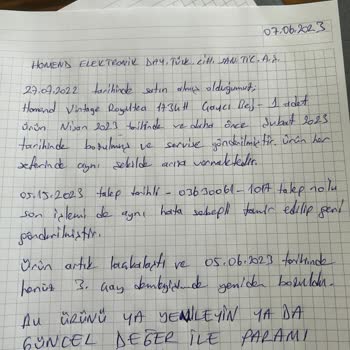 07.06.2023
HOMEND ELEKTRONİK DAY. TÜK. CİH. SAN. TİC. A.Ş.
27.07.2022 tarihinde satın almış olduğumuz
Homend Vintage Royaltea 1734H Çaycı Bej - 1 adet
ürün Nisan 2023 tarihinde ve daha önce Şubat 2023
tarihinde bozulmuş ve servise gönderilmiştir. Ürün her
seferinde aynı şekilde arıza vermektedir.
05.15.2023 talep tarihli - talep nolu
son işlemi de aynı hata sebepli tamir edilip geri
gönderilmiştir.
Ürün artık laçkalaştı ve 05.06.2023 tarihinde
henüz 3. çay demleyişinde yeniden bozuldu.
BU ÜRÜNÜ YA YENİLEYİN YA DA
GÜNCEL DEĞER İLE PARAMI